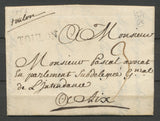 toulon
A Monsieur
Monsieur Pascal avocat
en parlement Subdelegué G.nal
de L'intendance
A Aix